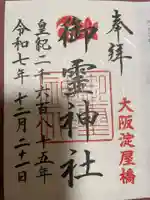 奉拝
大阪淀屋橋
御霊神社
皇紀二千六百八十五年
令和七年十二月二十二日